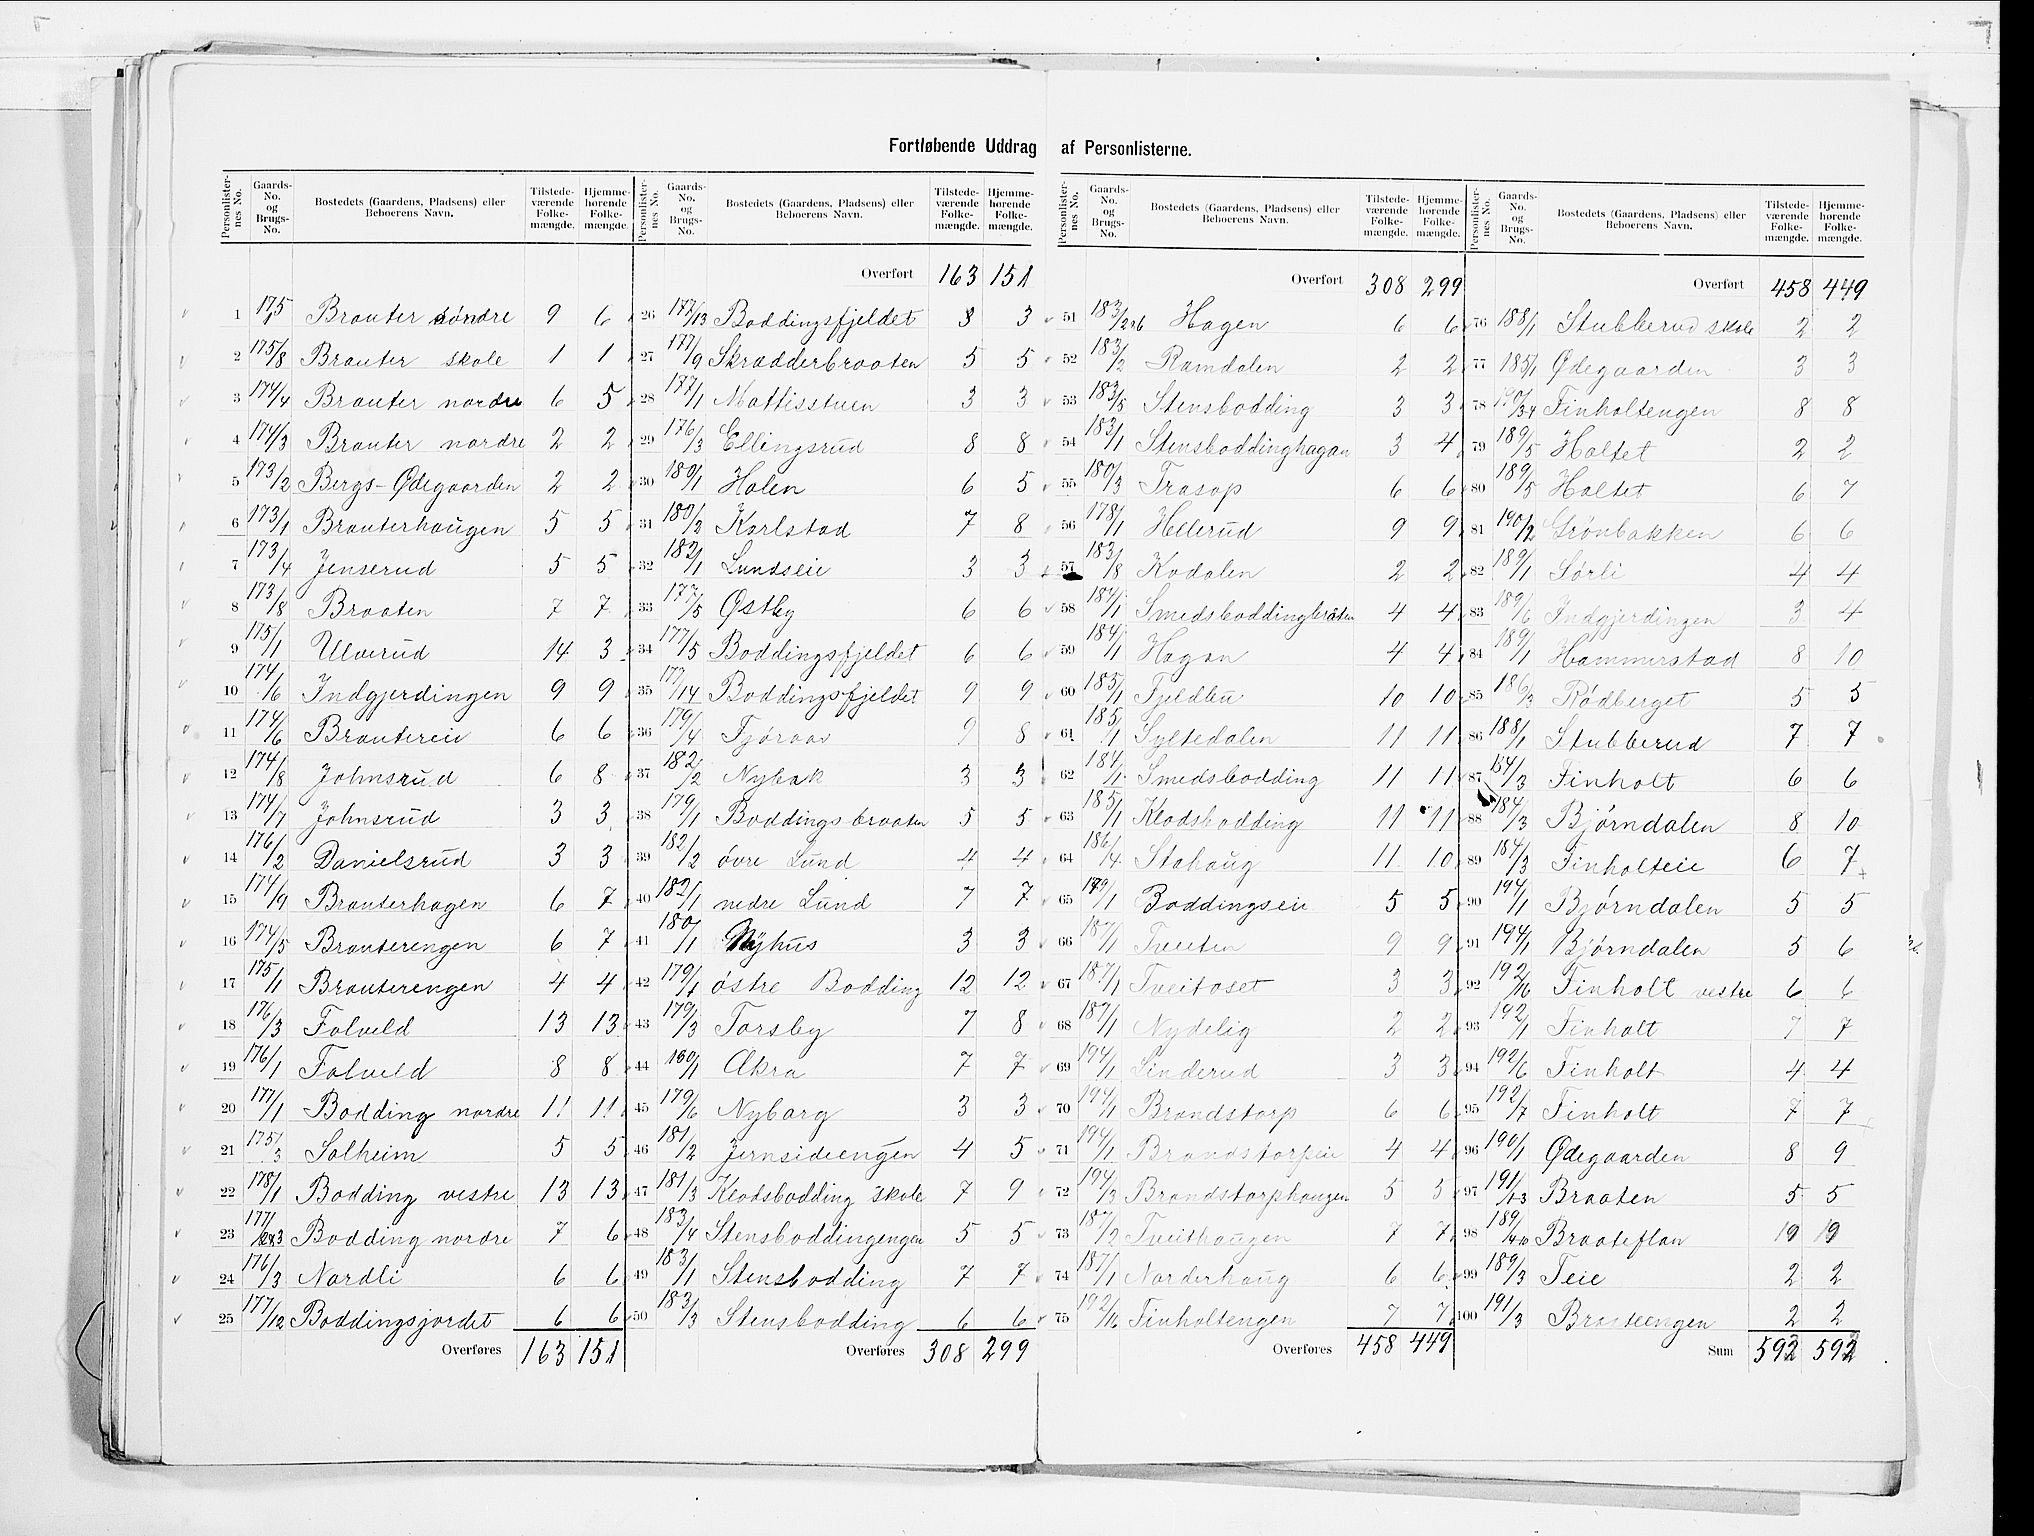 Fortløbende Uddrag af Personlisterne.
Personlister-nes No. Gaards-No. og Brugs-No. Bostedets (Gaardens, Pladsens) eller Beboerens Navn. Tilstede-værende Folke-mængde. Hjemme-hørende Folke-mængde.
1 175/1 Brauter söndre 9 6
2 175/8 Brauter skole 1 1
3 174/4 Brauter nordre 6 5
4 174/3 Brauter nordre 2 2
5 173/2 Bergs-Ødegaarden 2 2
6 173/1 Brauterhaugen 5 5
7 173/4 Jenserud 5 5
8 173/8 Braaten 7 7
9 175/1 Ulverud 14 3
10 174/6 Indgjerdingen 9 9
11 174/6 Brautereie 6 6
12 174/8 Johnsrud 6 8
13 174/7 Johnsrud 3 3
14 176/2 Danielsrud 3 3
15 174/9 Brauterhagen 6 7
16 174/5 Brauterengen 6 7
17 175/1 Brauterengen 4 4
18 176/3 Folveld 13 13
19 176/1 Folveld 8 8
20 177/1 Bodding nordre 11 11
21 175/3 Solheim 5 5
22 178/1 Bodding vestre 13 13
23 177/ Bodding nordre 7 6
24 176/3 Nordli 6 6
25 177/12 Boddingsjordet 6 6
Overføres 163 151
Personlister-nes No. Gaards-No. og Brugs-No. Bostedets (Gaardens, Pladsens) eller Beboerens Navn. Tilstede-værende Folke-mængde. Hjemme-hørende Folke-mængde.
Overført 163 151
26 177/13 Boddingsfjeldet 3 3
27 177/9 Skrædderbraaten 5 5
28 177/1 Mattisstuen 3 3
29 176/3 Ellingsrud 8 8
30 180/1 Holen 6 5
31 180/2 Karlstad 7 8
32 182/1 Lundseie 3 3
33 177/5 Østby 6 6
34 177/5 Boddingsfjeldet 6 6
35 177/14 Boddingsfjeldet 9 9
36 179/4 Fjöraas 9 8
37 182/2 Nybak 3 3
38 179/1 Boddingsbraaten 5 5
39 182/2 övre Lund 4 4
40 182/1 nedre Lund 7 7
41 180/1 Nyhus 3 3
42 179/1 östre Bodding 12 12
43 179/3 Torsby 7 8
44 180/1 Akra 7 7
45 179/6 Nyborg 3 3
46 181/2 Jernsideengen 4 5
47 181/3 Klodsbodding skole 7 9
48 183/4 Stensboddingengen 5 5
49 183/1 Stensbodding 7 7
50 183/3 Stensbodding 6 6
Overføres 308 299
Personlister-nes No. Gaards-No. og Brugs-No. Bostedets (Gaardens, Pladsens) eller Beboerens Navn. Tilstede-værende Folke-mængde. Hjemme-hørende Folke-mængde.
Overført 308 299
51 183/2+6 Hagen 6 6
52 183/2 Ramdalen 2 2
53 183/5 Stensbodding 3 3
54 183/1 Stensboddinghagan 3 4
55 180/3 Trasop 6 6
56 178/1 Hellerud 9 9
57 183/8 Kodalen 2 2
58 184/1 Smedsboddingbråten 4 4
59 184/1 Hagan 4 4
60 185/1 Fjeldbu 10 10
61 185/1 Syltedalen 11 11
62 184/1 Smedsbodding 11 11
63 185/1 Klodsbodding 11 11
64 186/4 Stahaug 11 10
65 179/1 Boddingseie 5 5
66 187/1 Tveiten 9 9
67 187/1 Tveitaset 3 3
68 187/1 Nydelig 2 2
69 194/1 Linderud 3 3
70 194/1 Brandstorp 6 6
71 194/1 Brandstorpeie 4 4
72 194/3 Brandstorphaugen 5 5
73 187/2 Tveithaugen 7 7
74 187/1 Norderhaug 6 6
75 192/16 Finholtengen 7 7
Overføres 458 449
Personlister-nes No. Gaards-No. og Brugs-No. Bostedets (Gaardens, Pladsens) eller Beboerens Navn. Tilstede-værende Folke-mængde. Hjemme-hørende Folke-mængde.
Overført 458 449
76 188/1 Stubberud skole 2 2
77 185/1 Ødegaarden 3 3
78 Finholtengen 8 8
79 189/5 Holtet 2 2
80 189/5 Holtet 6 7
81 190/2 Grönbakken 6 6
82 189/1 Sörli 4 4
83 189/6 Indgjerdingen 3 4
84 189/1 Hammerstad 8 10
85 186/3 Rödberget 5 5
86 188/1 Stubberud 7 7
87 184/3 Finholt 6 6
88 184/3 Bjørndalen 8 10
89 184/3 Finholteie 6 7
90 194/1 Bjørndalen 5 5
91 194/1 Bjørndalen 5 6
92 192/16 Finholt vestre 6 6
93 192/1 Finholt 7 7
94 192/6 Finholt 4 4
95 192/7 Finholt 7 7
96 190/1 Ødegaarden 8 9
97 191/ Braaten 5 5
98 189/ Braateflan 19 19
99 189/3 Teie 2 2
100 191/3 Braateengen 2 2
Sum 592 592